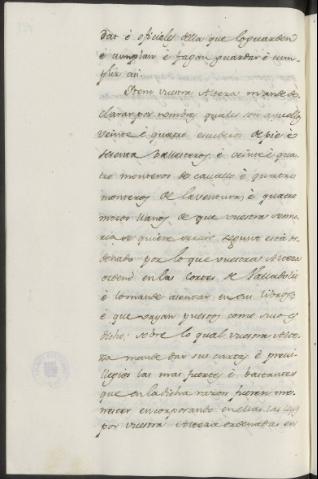 dar é oficiales della que lo guarden
é cumplan é fagan guardar é cum-
plir asi.
Item vuestra Alteza mande de-
clarar por nombres quales son aquellos
veinte é quatro escuderos de pie é
sesenta Ballesteros é veinte é qua-
tro monteros de cavallo é quatro
monteros de la ventura é quatro
mozos llanos de que vuestra
se quiere servir segunt está or-
denado por lo que vuestra Alteza
ordenó en las Cortes de Valladolid
é lo mande asentar en sus libros
é que vayan puestos como suso es
dicho; sobre lo qual vuestra Alte-
za mande dar sus cartas é previ-
llegios las mas fuertes é bastantes
que en la dicha razon fueren me-
nester encorporando en ellas las leyes
por vuestra Alteza ordenadas en